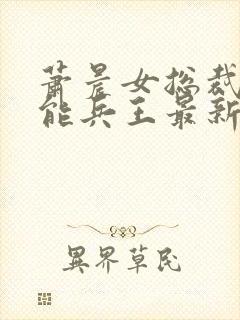 萧晨女总裁
能兵王最新
异界草民